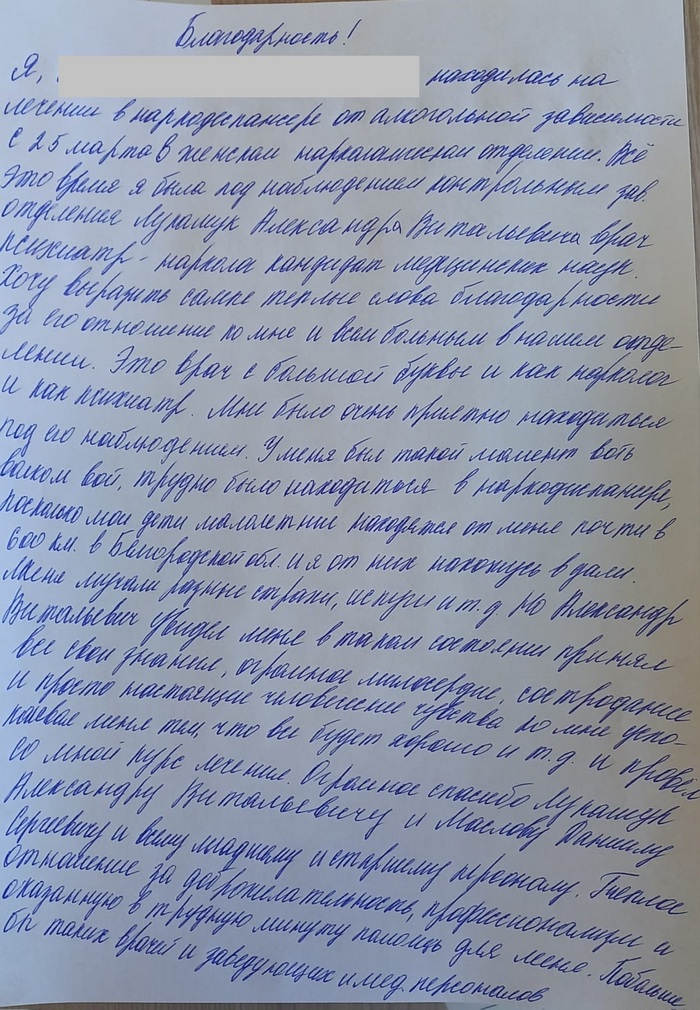 Благодарность!
Я, находилась на
лечении в наркодеспансере от алкогольной зависимости
с 25 марта в женском наркологическом отделении. Всё
это время я была под наблюдением контрольным зав.
отделения Лукашук Александра Витальевича врач
психиатр - нарколог кандидат медицинских наук.
Хочу выразить самые теплые слова благодарности
за его отношение ко мне и всем больным в нашем отде-
лении. Это врач с большой буквы и как нарколог
и как психиатр. Мне было очень приятно находиться
под его наблюдением. У меня был такой момент хоть
волком вой, трудно было находиться в наркодиспансере,
поскольку мои дети малолетние находятся от меня почти в
600 км. в Белгородской обл. и я от них нахожусь в дали.
Меня мучали разные страхи, испуги и т.д. Но Александр
Витальевич увидел меня в таком состоянии принял
все свои знания, огромное милосердие, сострадание
и просто настоящие человеческие чувства ко мне успо-
коевая меня тем, что все будет хорошо и т.д. и провел
со мной курс лечения. Огромное спасибо Лукашук
Александру Витальевичу и Маслову Даниилу
Сергеевичу и всему младшему и старшему персоналу. Теплое
отношение за доброжелательность, профессионализм и
оказанную в трудную минуту помощь для меня. Побольше
бы таких врачей и заведующих и мед. персоналов